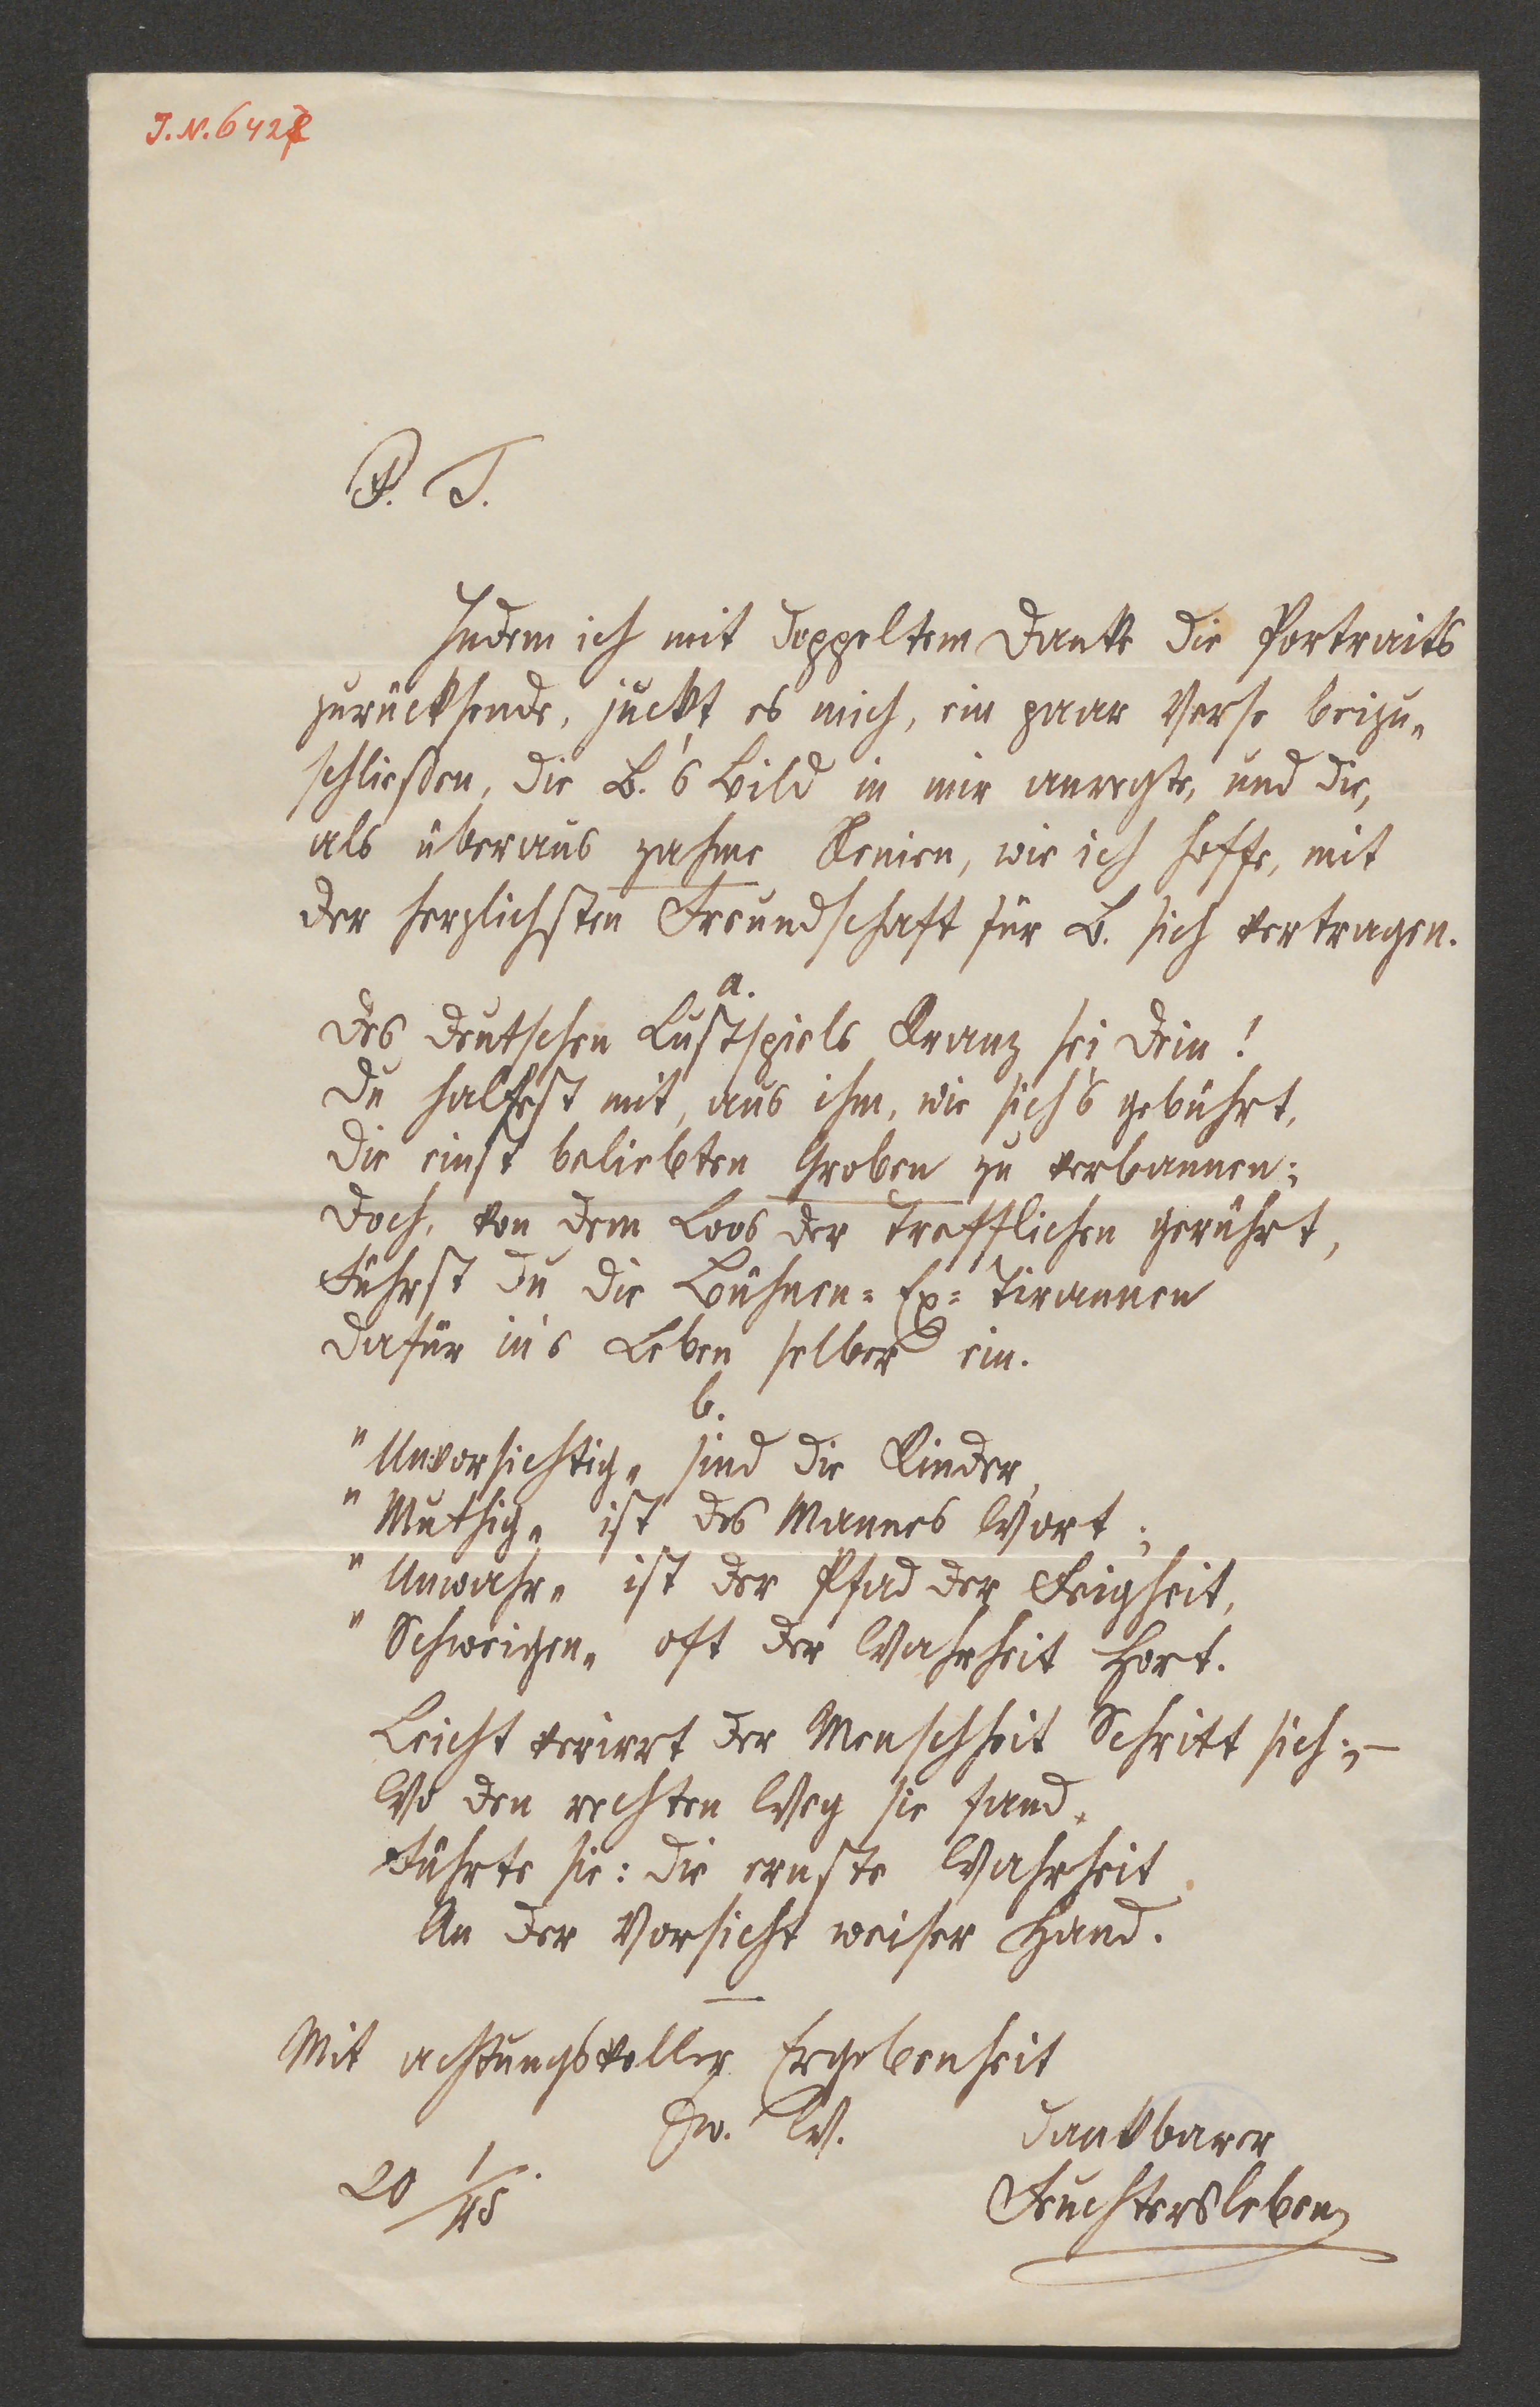 I.N. 6427
P. T.
Indem ich mit doppeltem Danke die Portraits
zurücksende, juckt es mich, ein paar Verse beizu„
schließen, die B.'s Bild in mir anregte, und die,
als überaus zahme Xenien, wie ich hoffe, mit
der herzlichsten Freundschaft für B. sich vertragen.
a.
Des deutschen Lustspiels Kranz sei Dein!
Du halfest mit, aus ihm, wie sich's gebührt,
Die einst beliebten Groben zu verbannen;
Doch, von dem Loos der Trefflichen gerührt,
Führst Du die Bühnen= Ex= Tirannen
Dafür in's Leben selber ein.
b.
"Unvorsichtig„ sind die Kinder,
"Muthig„ ist des Mannes Wort;
"Unwahr„ ist der Pfad der Feigheit,
"Schweigen„ oft der Wahrheit Hort.
Leicht verirrt der Menschheit Schritt sich; –
Wo den rechten Weg sie fand,
Führte sie: die ernste Wahrheit
An der Vorsicht weiser Hand.
—
Mit achtungsvoller Ergebenheit
Ew. W.
dankbarer
20 1/45.
Feuchtersleben